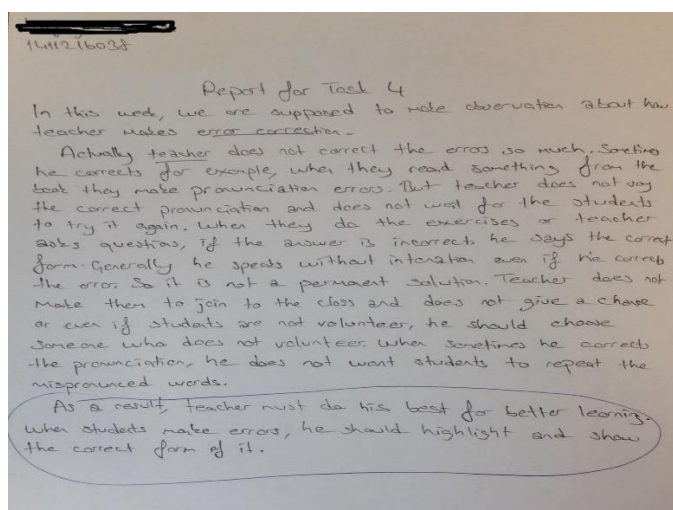 1411216038
Report for Task 4
In this week, we are supposed to make observation about how
teacher makes error correction.
Actually teacher does not correct the errors so much. Sometimes
he corrects for example, when they read something from the
book they make pronunciation errors. But teacher does not say
the correct pronunciation and does not wait for the students
to try it again. When they do the exercises or teacher
asks questions, if the answer is incorrect, he says the correct
form. Generally he speaks without intonation even if he corrects
the error. So it is not a permanent solution. Teacher does not
make them to join to the class and does not give a chance
or even if students are not volunteer, he should choose
someone who does not volunteer. When sometimes he corrects
the pronunciation, he does not want students to repeat the
mispronunced words.
As a result, teacher must do his best for better learning.
When students make errors, he should highlight and show
the correct form of it.